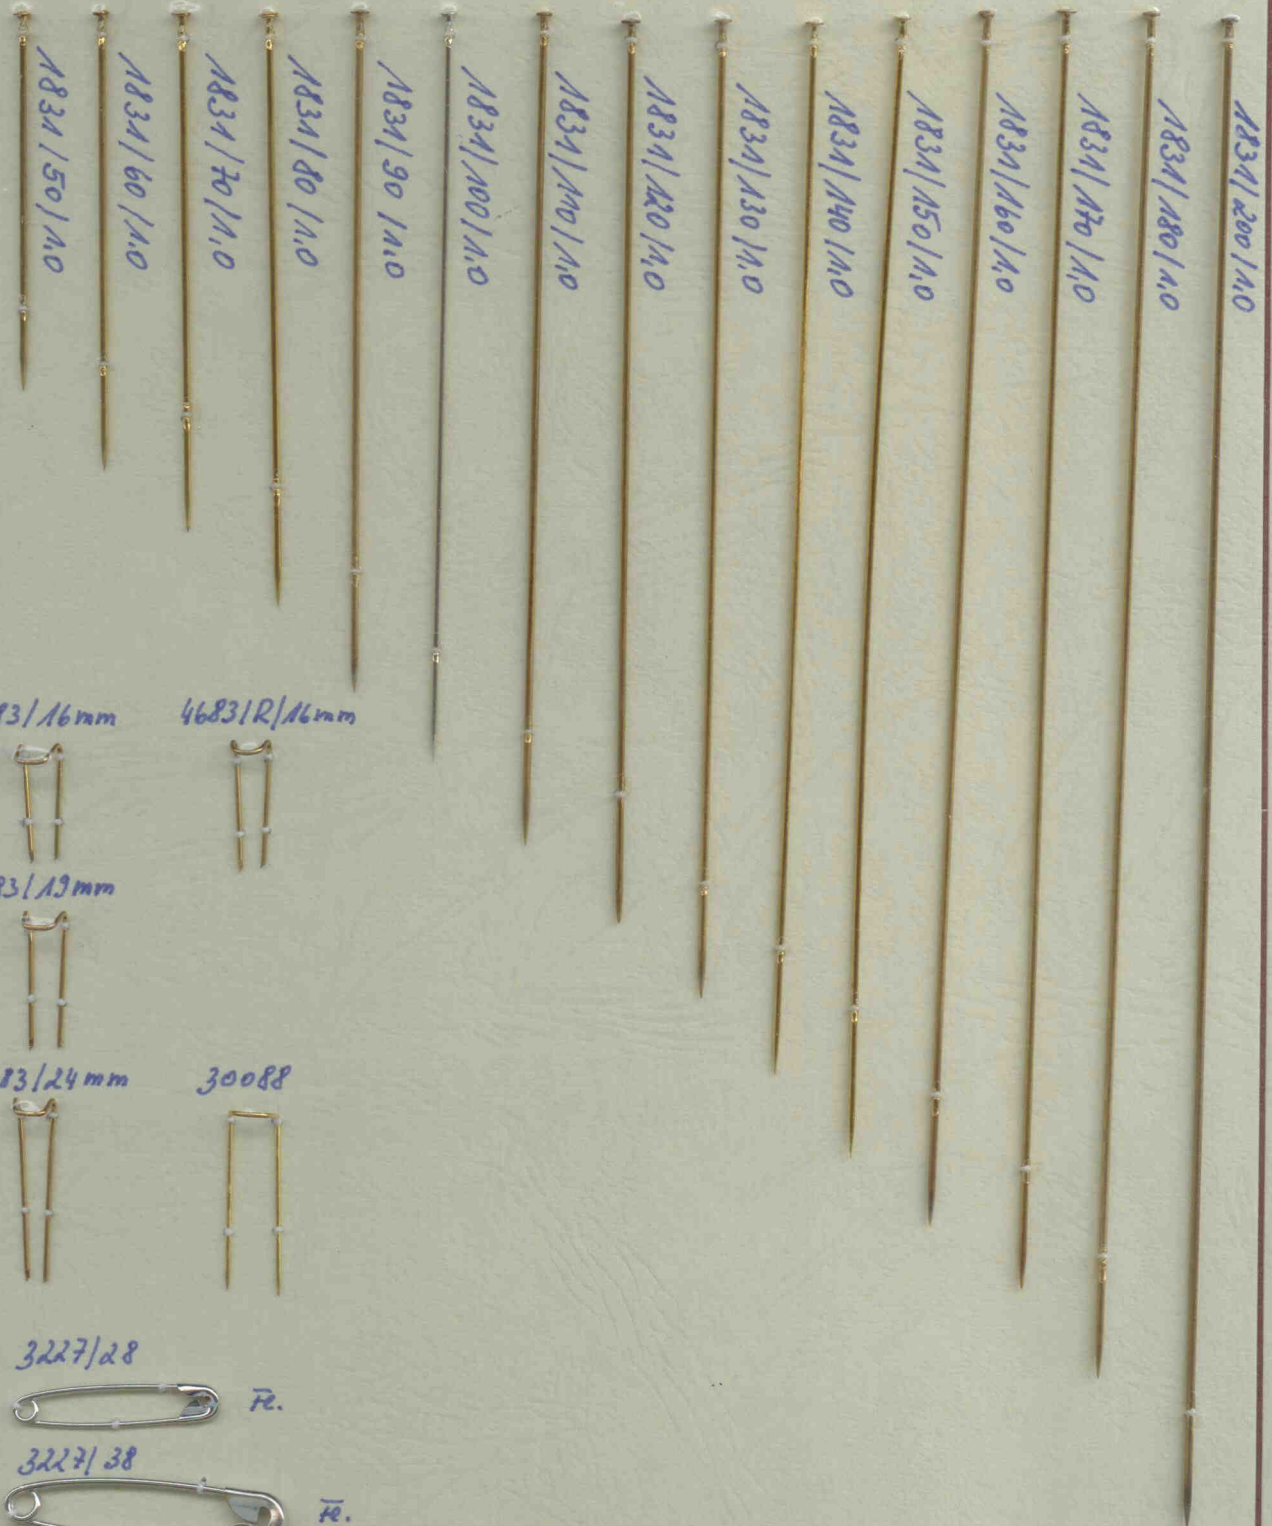 1831/50/1,0
1831/60/1,0
1831/70/1,0
1831/80/1,0
1831/90/1,0
1831/100/1,0
1831/110/1,0
1831/120/1,0
1831/130/1,0
1831/140/1,0
1831/150/1,0
1831/160/1,0
1831/170/1,0
1831/180/1,0
1831/200/1,0
83/16mm
4683/R/16mm
83/19mm
83/24mm
30088
3227/28
Fe.
3227/38
Fe.